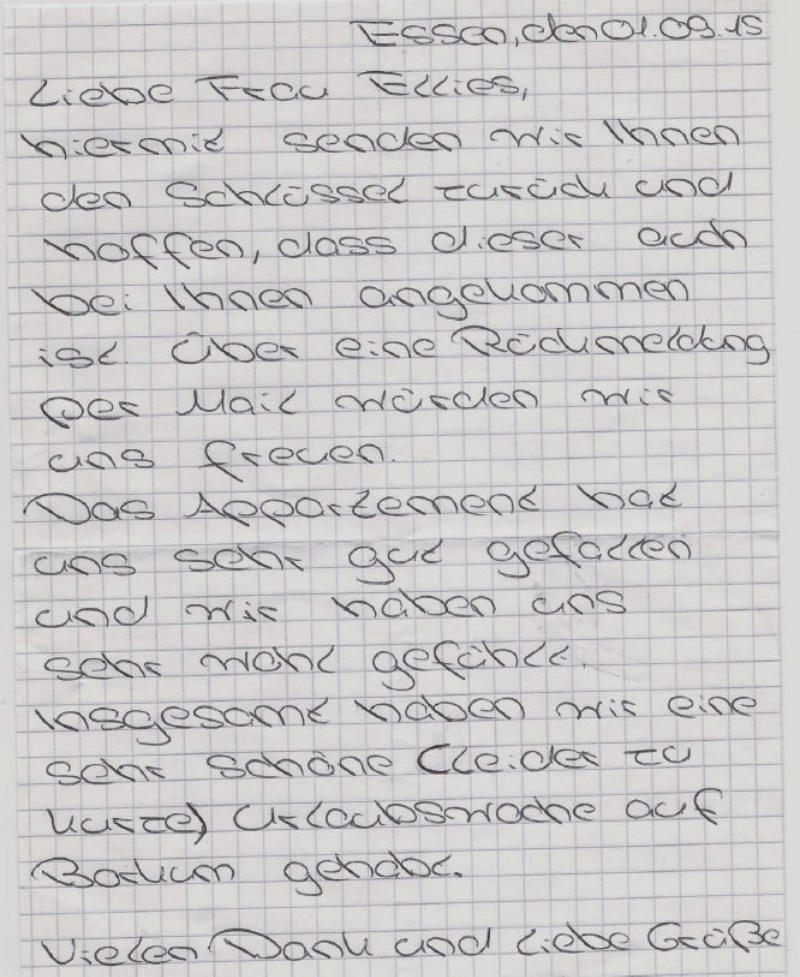 Essen, den 01.09.15
Liebe Frau Ellies,
hiermit senden wir Ihnen
den Schlüssel zurück und
hoffen, dass dieser auch
bei Ihnen angekommen
ist. Über eine Rückmeldung
per Mail würden wir
uns freuen.
Das Appartement hat
uns sehr gut gefallen
und wir haben uns
sehr wohl gefühlt.
Insgesamt haben wir eine
sehr schöne (leider zu
kurze) Urlaubswoche auf
Borkum gehabt.
Vielen Dank und liebe Grüße